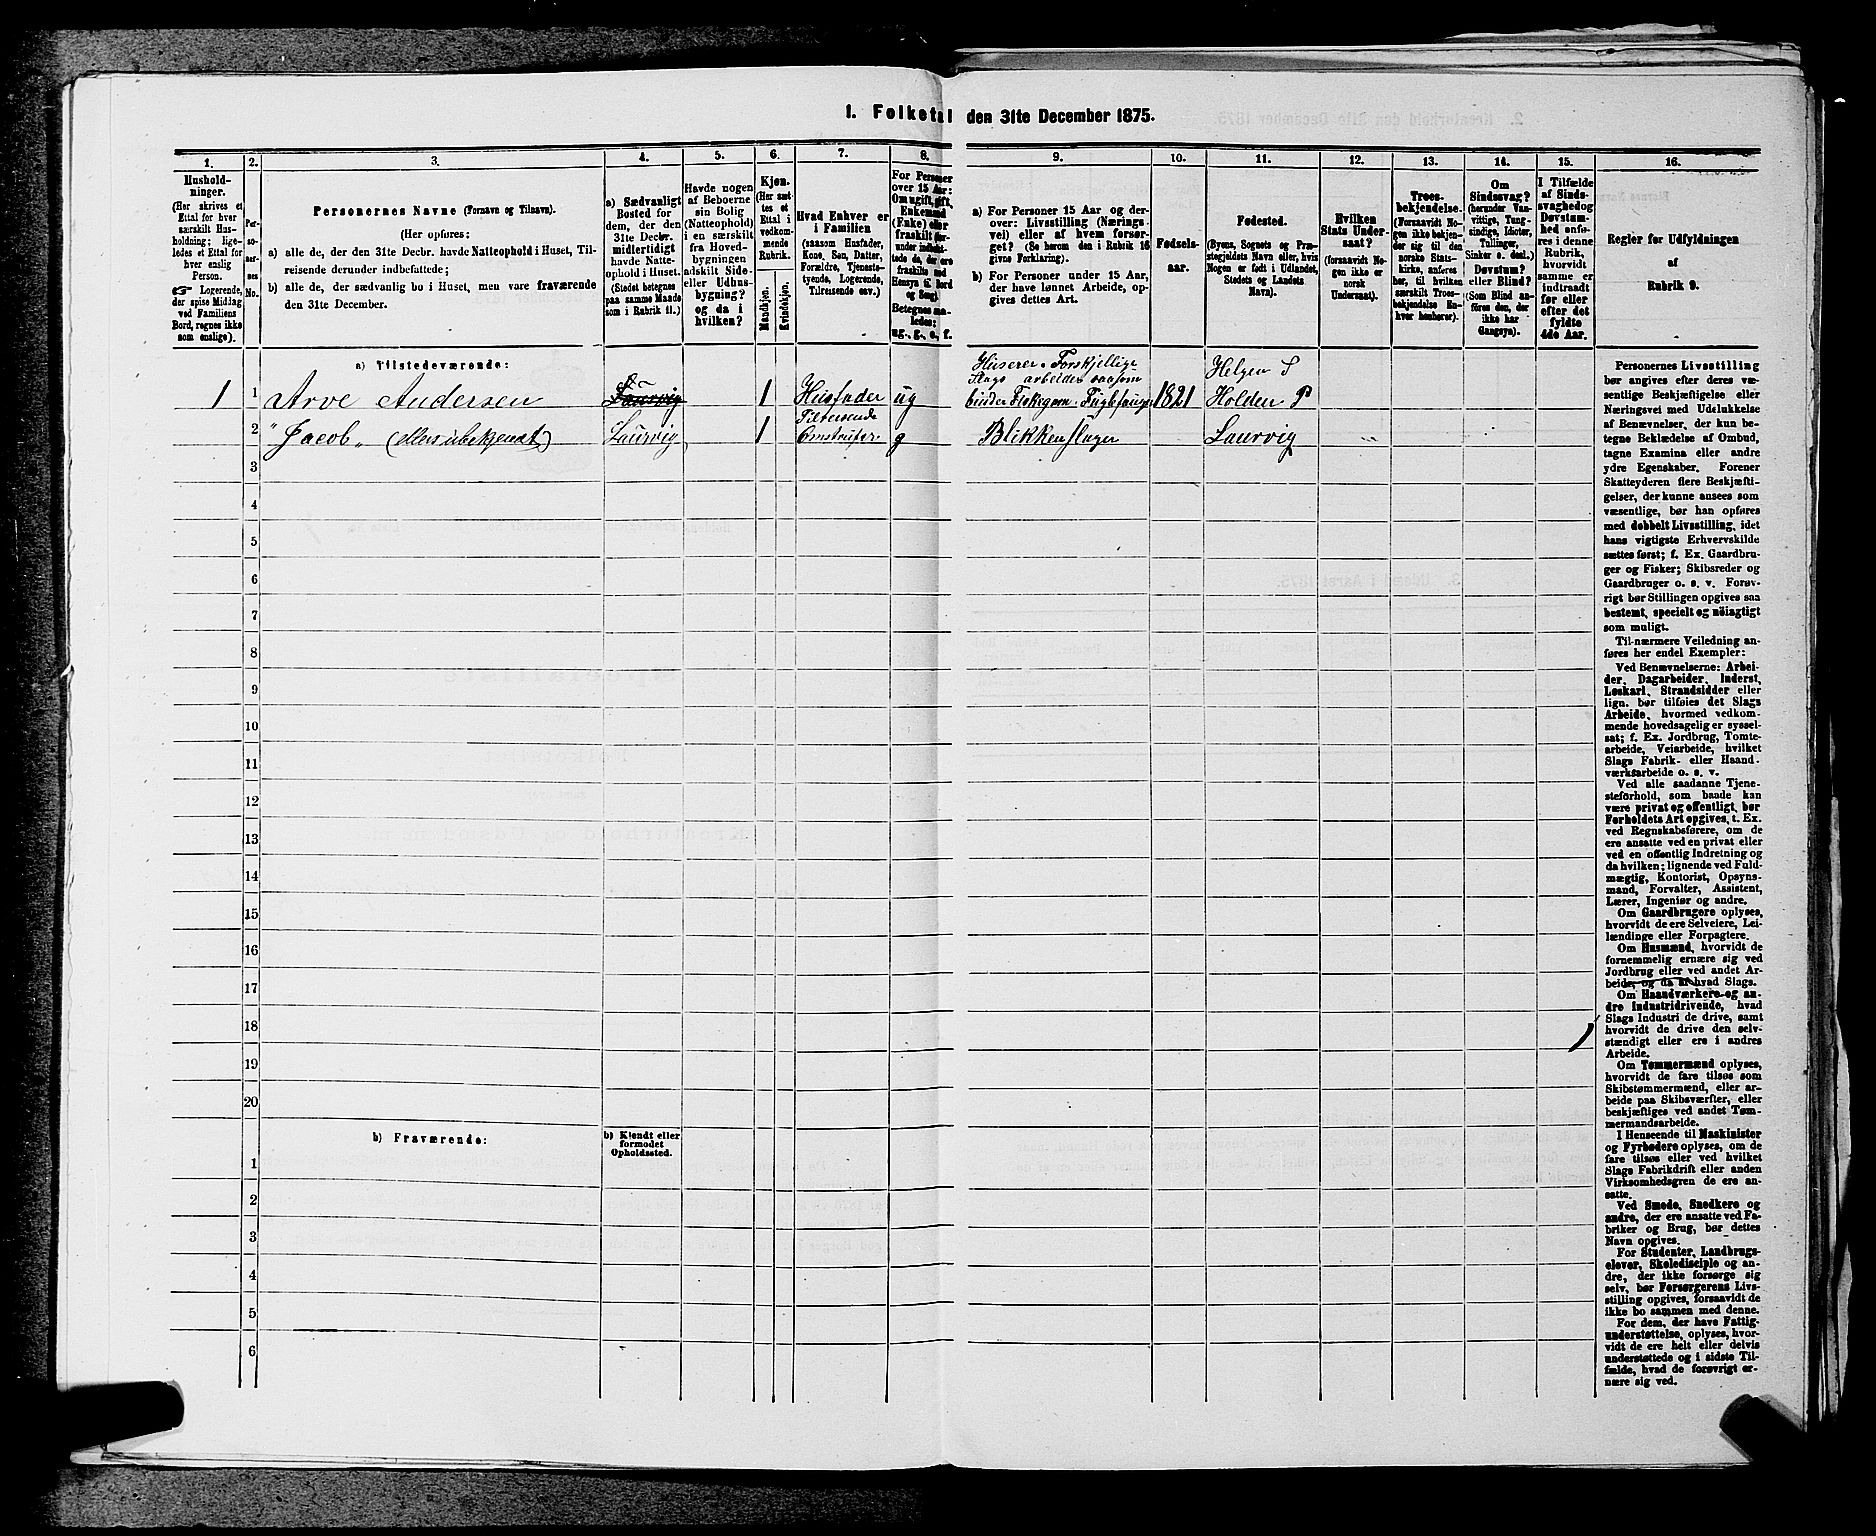 1. Folketal den 31te December 1875.
1.
2.
3.
4.
5.
6.
7.
8.
9.
10.
11.
12.
13.
14.
15.
16.
Hushold-
ninger.
(Her skrives et
Ettal for hver
særskilt Hus-
holdning; lige-
ledes et Ettal for
hver enslig
Person.
☞ Logerende,
der spise Middag
ved Familiens
Bord, regnes ikke
som enslige).
Per-
so-
ner-
nes
No.
Personernes Navne (Fornavn og Tilnavn).
(Her opføres:
a) alle de, der den 31te Decbr. havde Natteophold i Huset, Til-
reisende derunder indbefattede;
b) alle de, der sædvanlig bo i Huset, men vare fraværende
den 31te December.
a) Sædvanligt
Bosted for
dem, der den
31te Decbr.
midlertidigt
havde Natte-
ophold i Huset.
(Stedet betegnes
paa samme Maade
som i Rubrik 11.)
Havde nogen
af Beboerne
sin Bolig
(Natteophold)
i en særskilt
fra Hoved-
bygningen
adskilt Side-
eller Udhus-
bygning?
og da i
hvilken?
Kjøn.
(Her sæt-
tes et
Ettal i
vedkom-
mende
Rubrik.
Mandkjøn.
Kvindekjøn.
Hvad Enhver er
i Familien
(saasom Husfader,
Kone, Søn, Datter,
Forældre, Tjeneste-
tyende, Logerende,
Tilreisende osv.)
For Personer
over 15 Aar:
Om ugift, gift,
Enkemand
(Enke) eller
fraskilt
Betegnes saa-
ledes:
ug., g., e., f.
a) For Personer 15 Aar og der-
over: Livsstilling (Nærings-
vei) eller af hvem forsør-
get? (Se herom den i Rubrik 16
givne Forklaring).
b) For Personer under 15 Aar,
der have lønnet Arbeide, op-
gives dettes Art.
Fødsels-
aar.
Fødested.
(Byens, Sognets og Præ-
stegjeldets Navn eller, hvis
Nogen er født i Udlandet,
Stedets og Landets
Navn).
Hvilken
Stats Under-
saat?
(forsaavidt No-
gen ikke er
norsk
Undersaat).
Troes-
bekjendelse.
(Forsaavidt No-
gen ikke bekjen-
der sig til den
norske Stats-
kirke, anføres
her, til hvilken
særskilt Troes-
bekjendelse En-
hver henhører).
Om
Sindssvag?
(herunder Van-
vittige, Tung-
sindige, Idioter,
Tullinger,
Sinker o. desl.)
Døvstum?
eller Blind?
(Som Blind an-
føres den, der
ikke har
Gangsyn).
I Tilfælde
af Sinds-
svaghed og
Døvstum-
hed anfø-
res i denne
Rubrik,
hvorvidt
samme er
indtraadt
før eller
efter det
fyldte
4de Aar.
Regler for Udfyldningen
af
Rubrik 9.
a) Tilstedeværende:
1 1 Arve Andersen Laurvig 1 Husfader ug
Huserer. Forskjellige
Slags arbeider saasom
binder Fiskegarn. Fuglefanger
1821
Helgen S
Holden P
2 "Jacob" (ellers ubekjendt) Laurvig 1 Tilreisende
Omstreifer g Blikkenslager Laurvig
3
4
5
6
7
8
9
10
11
12
13
14
15
16
17
18
19
20
b) Fraværende:
b) Kjendt eller
formodet
Opholdssted.
1
2
3
4
5
6
Personernes Livsstilling
bør angives efter deres væ-
sentlige Beskjæftigelse eller
Næringsvei med Udelukkelse
af Benævnelser, der kun be-
tegne Beklædelse af Ombud,
tagne Examina eller andre
ydre Egenskaber. Forener
Skatteyderen flere Beskjæfti-
gelser, der kunne ansees som
væsentlige, bør han opføres
med dobbelt Livsstilling, idet
hans vigtigste Erhvervskilde
sættes først; f. Ex. Gaardbru-
ger og Fisker; Skibsreder og
Gaardbruger o. s. v. Forøv-
rigt bør Stillingen opgives saa
bestemt, specielt og nöiagtigt
som muligt.
Til nærmere Veiledning an-
føres her endel Exempler:
Ved Benævnelserne: Arbei-
der, Dagarbeider, Inderst,
Løskarl, Strandsidder eller
lign. bør tilføies det Slags
Arbeide, hvormed vedkom-
mende hovedsagelig er syssel-
sat; f. Ex. Jordbrug, Tomte-
arbeide, Veiarbeide, hvilket
Slags Fabrik- eller Haand-
værksarbeide o. s. v.
Ved alle saadanne Tjene-
steforhold, som baade kan
være privat og offentligt, bør
Forholdets Art opgives, t. Ex.
ved Regnskabsførere, om de
ere ansatte ved en privat eller
ved en offentlig Indretning og
da hvilken; lignende ved Fuld-
mægtig, Kontorist, Opsyns-
mand, Forvalter, Assistent,
Lærer, Ingeniør og andre.
Om Gaardbrugere oplyses,
hvorvidt de ere Selveiere, Lei-
lændinge eller Forpagtere.
Om Husmænd, hvorvidt de
fornemmelig ernære sig ved
Jordbrug eller ved andet Ar-
beide, og da af hvad Slags.
Om Haandværkere og an-
dre Industridrivende, hvad
Slags Industri de drive, samt
hvorvidt de drive den selv-
stændigt eller ere i andres
Arbeide.
Om Tømmermænd oplyses,
hvorvidt de fare tilsøs som
Skibstømmermænd, eller ar-
beide paa Skibsværfter, eller
beskjæftiges ved andet Tøm-
mermandsarbeide.
I Henseende til Maskinister
og Fyrbødere oplyses, om de
fare tilsøs eller ved hvilket
Slags Fabrikdrift eller anden
Virksomhedsgren de ere an-
satte.
Ved Smede, Snedkere og
andre, der ere ansatte ved Fa-
briker og Brug, bør dettes
Navn opgives.
For Studenter, Landbrugs-
elever, Skoledisciple og an-
dre, der ikke forsørge sig
selv, bør Forsørgerens Livs-
stilling opgives, forsaavidt de
ikke bo sammen med denne.
For dem, der have Fattig-
understøttelse, oplyses, hvor-
vidt de ere helt eller delvis
understøttede og i sidste Til-
fælde, hvad de forøvrigt er-
nære sig ved.